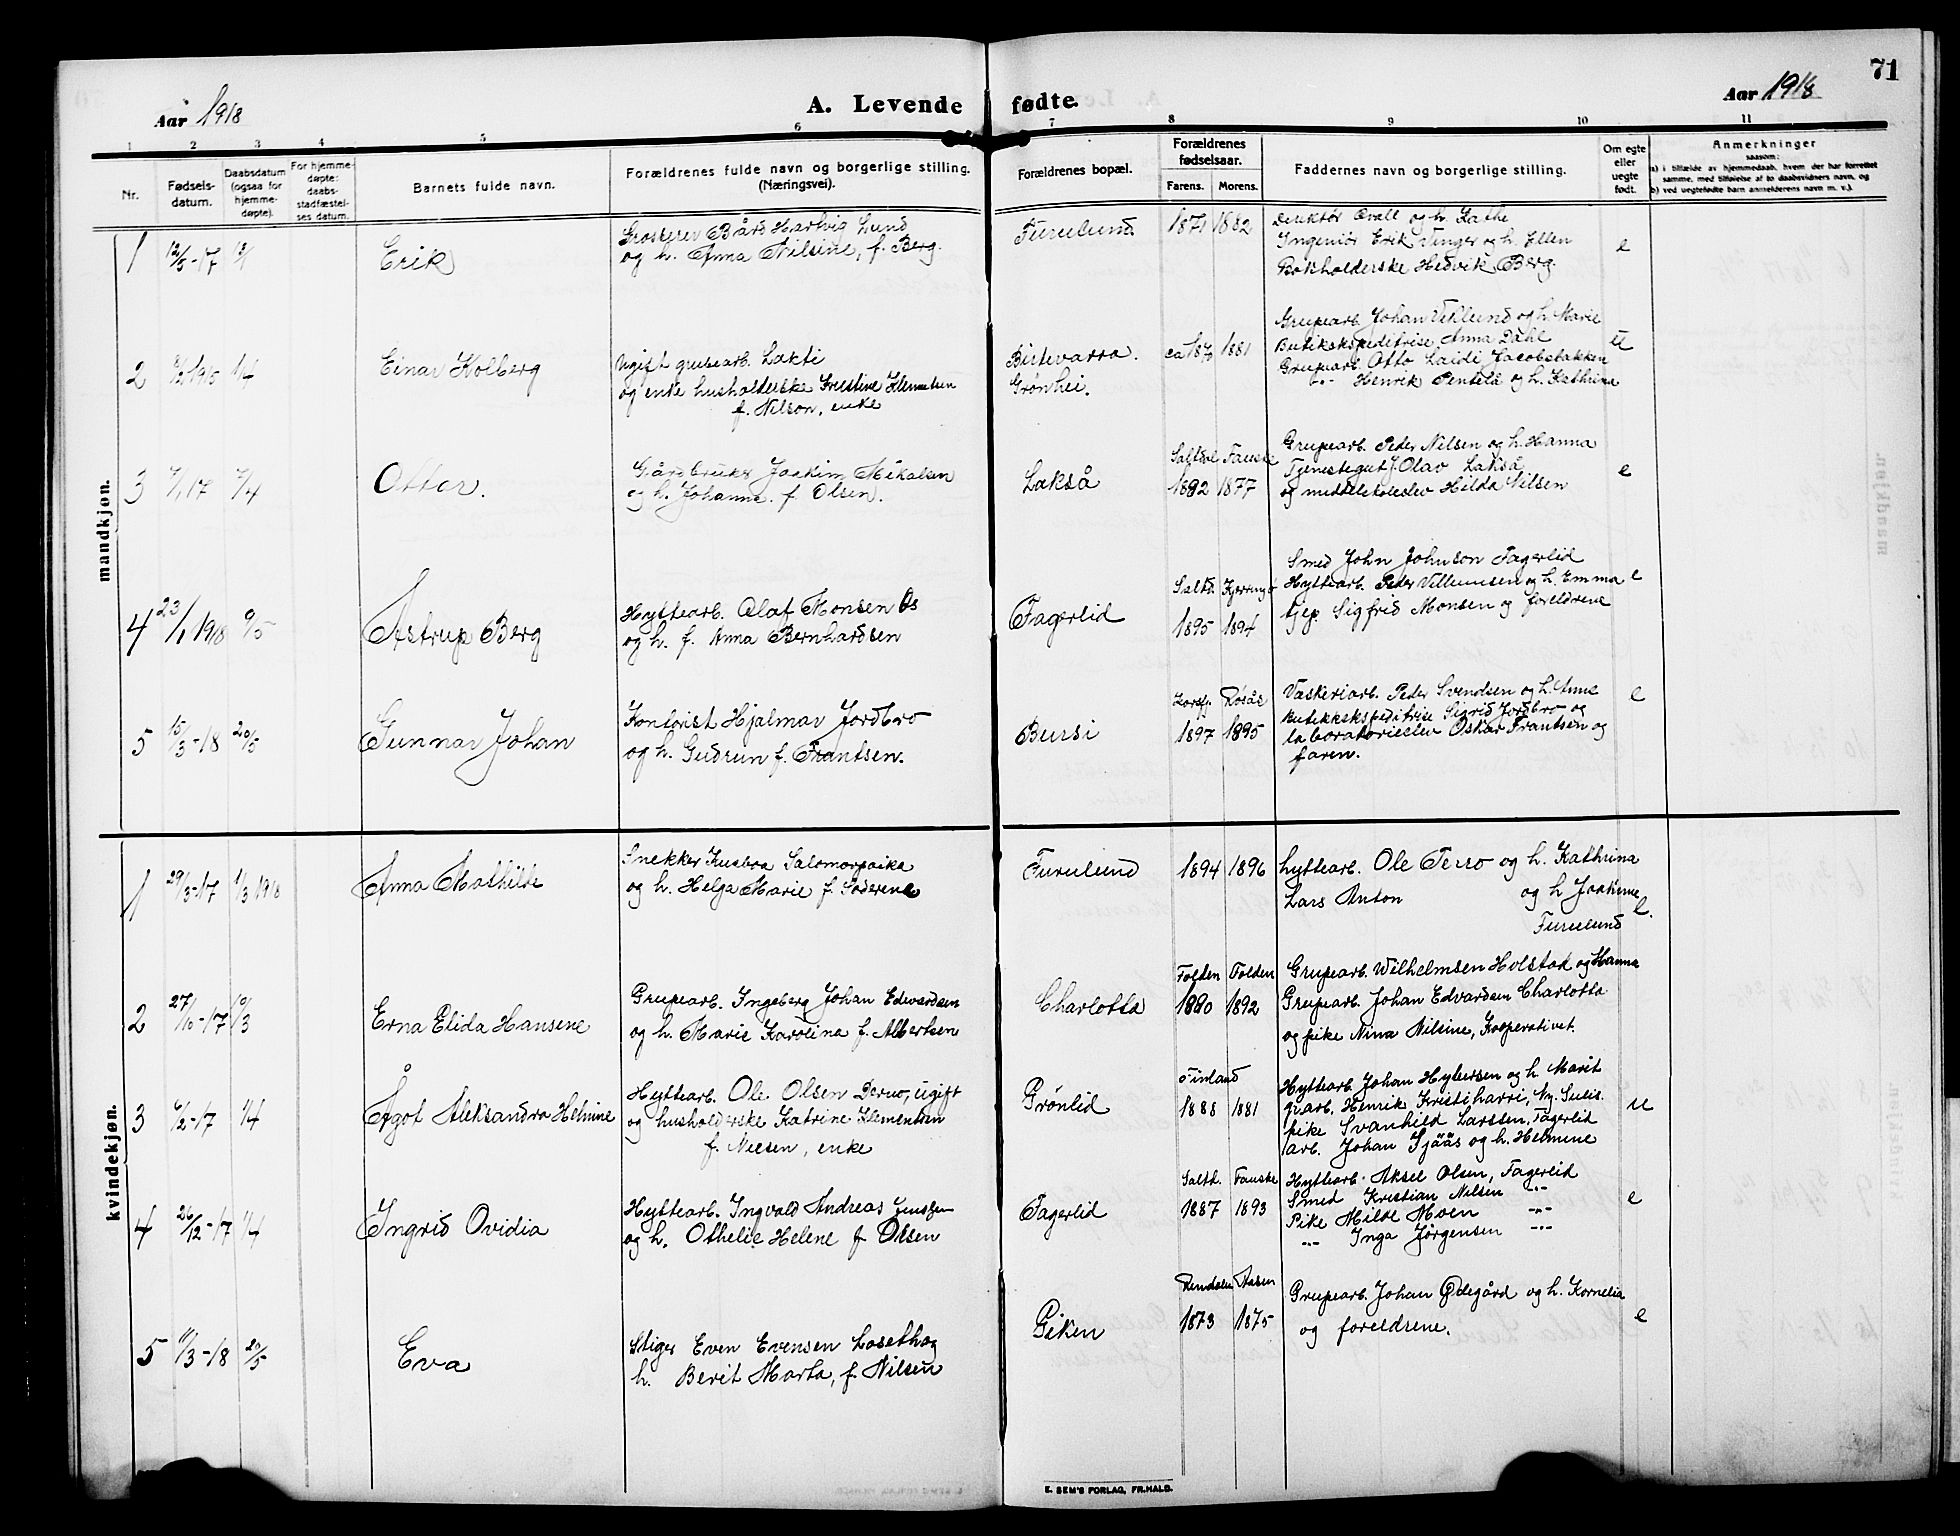 71
Aar 1918
A. Levende fødte.
Aar 1918
1 2 3 4 5 6 7 8 9 10 11
Nr.
Fødsels-
datum.
Daabsdatum
(ogsaa for
hjemme-
døpte).
For hjemme-
døpte:
daabs-
stadfæstel-
ses datum.
Barnets fulde navn.
Forældrenes fulde navn og borgerlige stilling.
(Næringsvei).
Forældrenes bopæl.
Forældrenes
fødselsaar.
Farens. Morens.
Faddernes navn og borgerlige stilling.
Om egte
eller
uegte
født.
Anmerkninger
saasom:
a) i tilfælde av hjemmedaab, hvem der har forrettet
samme, med tilføielse af to daabsvidners navn, og
b) ved uegtefødte barn anmelderens navn m. v.).
mandkjøn.
1 12/5-17
Erik
Bård Hartvig Lund
og h. Anna Nilsine, f. Berg.
Furulund
1871 1882
Direktør Qvall og h. Kathe
Ingeniør Erik Tenger og h. Ellen
Bokholderske Hedvik Berg.
e
2 1/4
Einar Kolberg
Ugift grubearb. Lakti
og enke husholderske Kristine Klemetsen
f. Nilson, enke
Birtevarra.
Grønhei.
ca 1870 1881
Grupearb. Johan Viklund og h. Marie
Butikekspeditrise Anna Dahl
Grupearb. Otto Laidi, Jacobsbakken
-"- Henrik Pentilä og h. Kathrina
u
3 7/1 17 7/4
Otter.
Gårdbruker Joakim Mikalsen
og h. Johanne f. Olsen.
Lakså
Saltdal Fauske
1882 1877
Grupearb. Peder Nilsen og h. Hanna
Tjenestegut J. Olav Lakså
og middelskoleelev Hilda Nilsen
e
4 23/1 1918 9/5
Astrup Berg
Hyttearb. Olaf Monsen Os
og h. f. Anna Bernhardsen
Fagerlid
Saltd. Kjerringø
1895 1894
Smed John Johnson Fagerlid
Hyttearb. Peder Villumsen og h. Emma
Gep. Sigfrid Monsen og foreldrene
e
5 15/3-18 20/5
Gunnar Johan
Kontorist Hjalmar Jordbro
og h. Gudrun f. Frantsen.
Bursi
Røsås
1897 1895
Vaskeriarb. Peder Svendsen og h. Anne
butikkekspeditrise Sigrid Jordbro og
laboratorieelev Oskar Frantsen og
faren.
e
kvindekjøn.
1 29/3-17 1/3 1918
Anna Mathilde
Snekker Kusboa Salomorpaika
og h. Helga Marie f. Söderene
Furulund
1894 1896
hyttearb. Ole Terro og h. Kathrina
Lars Anton og h Joakime
Furulund
e.
2 27/10-17 10/3
Erna Elida Hansene
Grupearb. Ingeberg Johan Edvardsen
og h. Marie Karolina f. Albertsen
Charlotta
Folden Folden
1890 1892
Grupearb. Wilhelmsen Holstad og Hanna
Grupearb. Johan Edvardsen Charlotta
og pike Nina Nilsine, Kooperativet.
3 6/2-17 1/4
Ågot Aleksandra Helmine
Hyttearb. Ole Olsen Dervo, ugift
og husholderske Katrine Klementsen
f. Nielsen, enke
Grønlid
Finland
1888 1881
Hyttearb. Johan Hybersen og h Marit
grarb. Henrik Kristiharri, Ny Sulis.
pike Svanhild Larssen, Fagerlid
arb. Johan Sjåås og h. Helmine
u
4 26/12-17 1/4
Ingrid Ovidia
Hyttearb. Ingvald Andreas Jenssen
og h. Othelie Helene f Olsen
Fagerlid
Saltd. Fauske
1887 1893
Hyttearb. Aksel Olsen, Fagerlid
Smed Kristian Nilsen -"-
Pike Milde Moen -"-
-"- Inga Jørgensen -"-
e
5 11/3-18 20/5
Eva
Stiger Even Evensen Losethog
h. Berit Marta, f. Nilsen
Giken
Rendalen Aasen
1873 1875
Grupearb. Johan Ødegård og h. Kornelia
og foreldrene.
e
E. SEM'S FORLAG, FR.HALD.